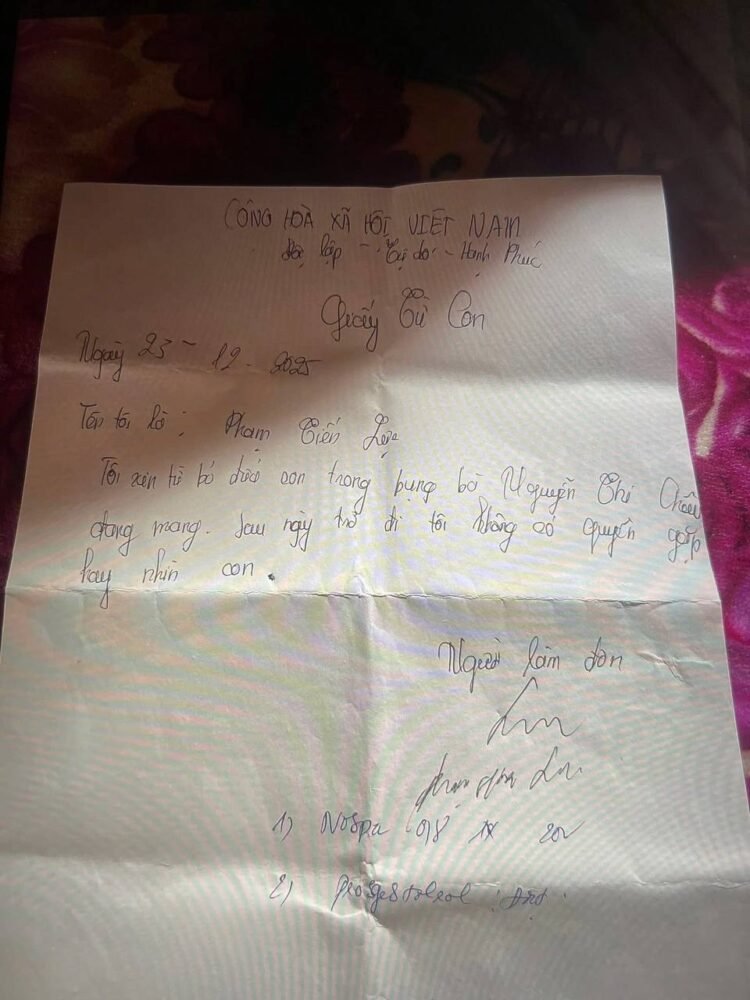 CÔNG HOÀ XÃ HỘI VIỆT NAM
Độc lập - Tự do - Hạnh Phúc
Giấy Từ Con
Ngày 23 - 12 - 2025
Tên tôi là : Phạm Tiến
Tôi xin từ bỏ đứa con trong bụng bà Nguyễn Thi Châu
đang mang. Sau ngày trở đi tôi không có quyền gặp
hay nhìn con.
Người làm đơn
1) Nospa
2)